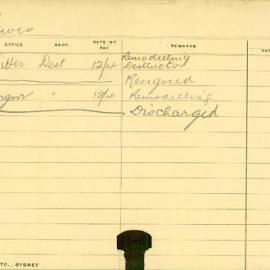 OFFICE DEPT. RATE OF PAY REMARKS DA
Dest 12/4 Remodelling
Destructor
Resigned
" 12/4 Remodelling
Discharged
TO., SYDNEY